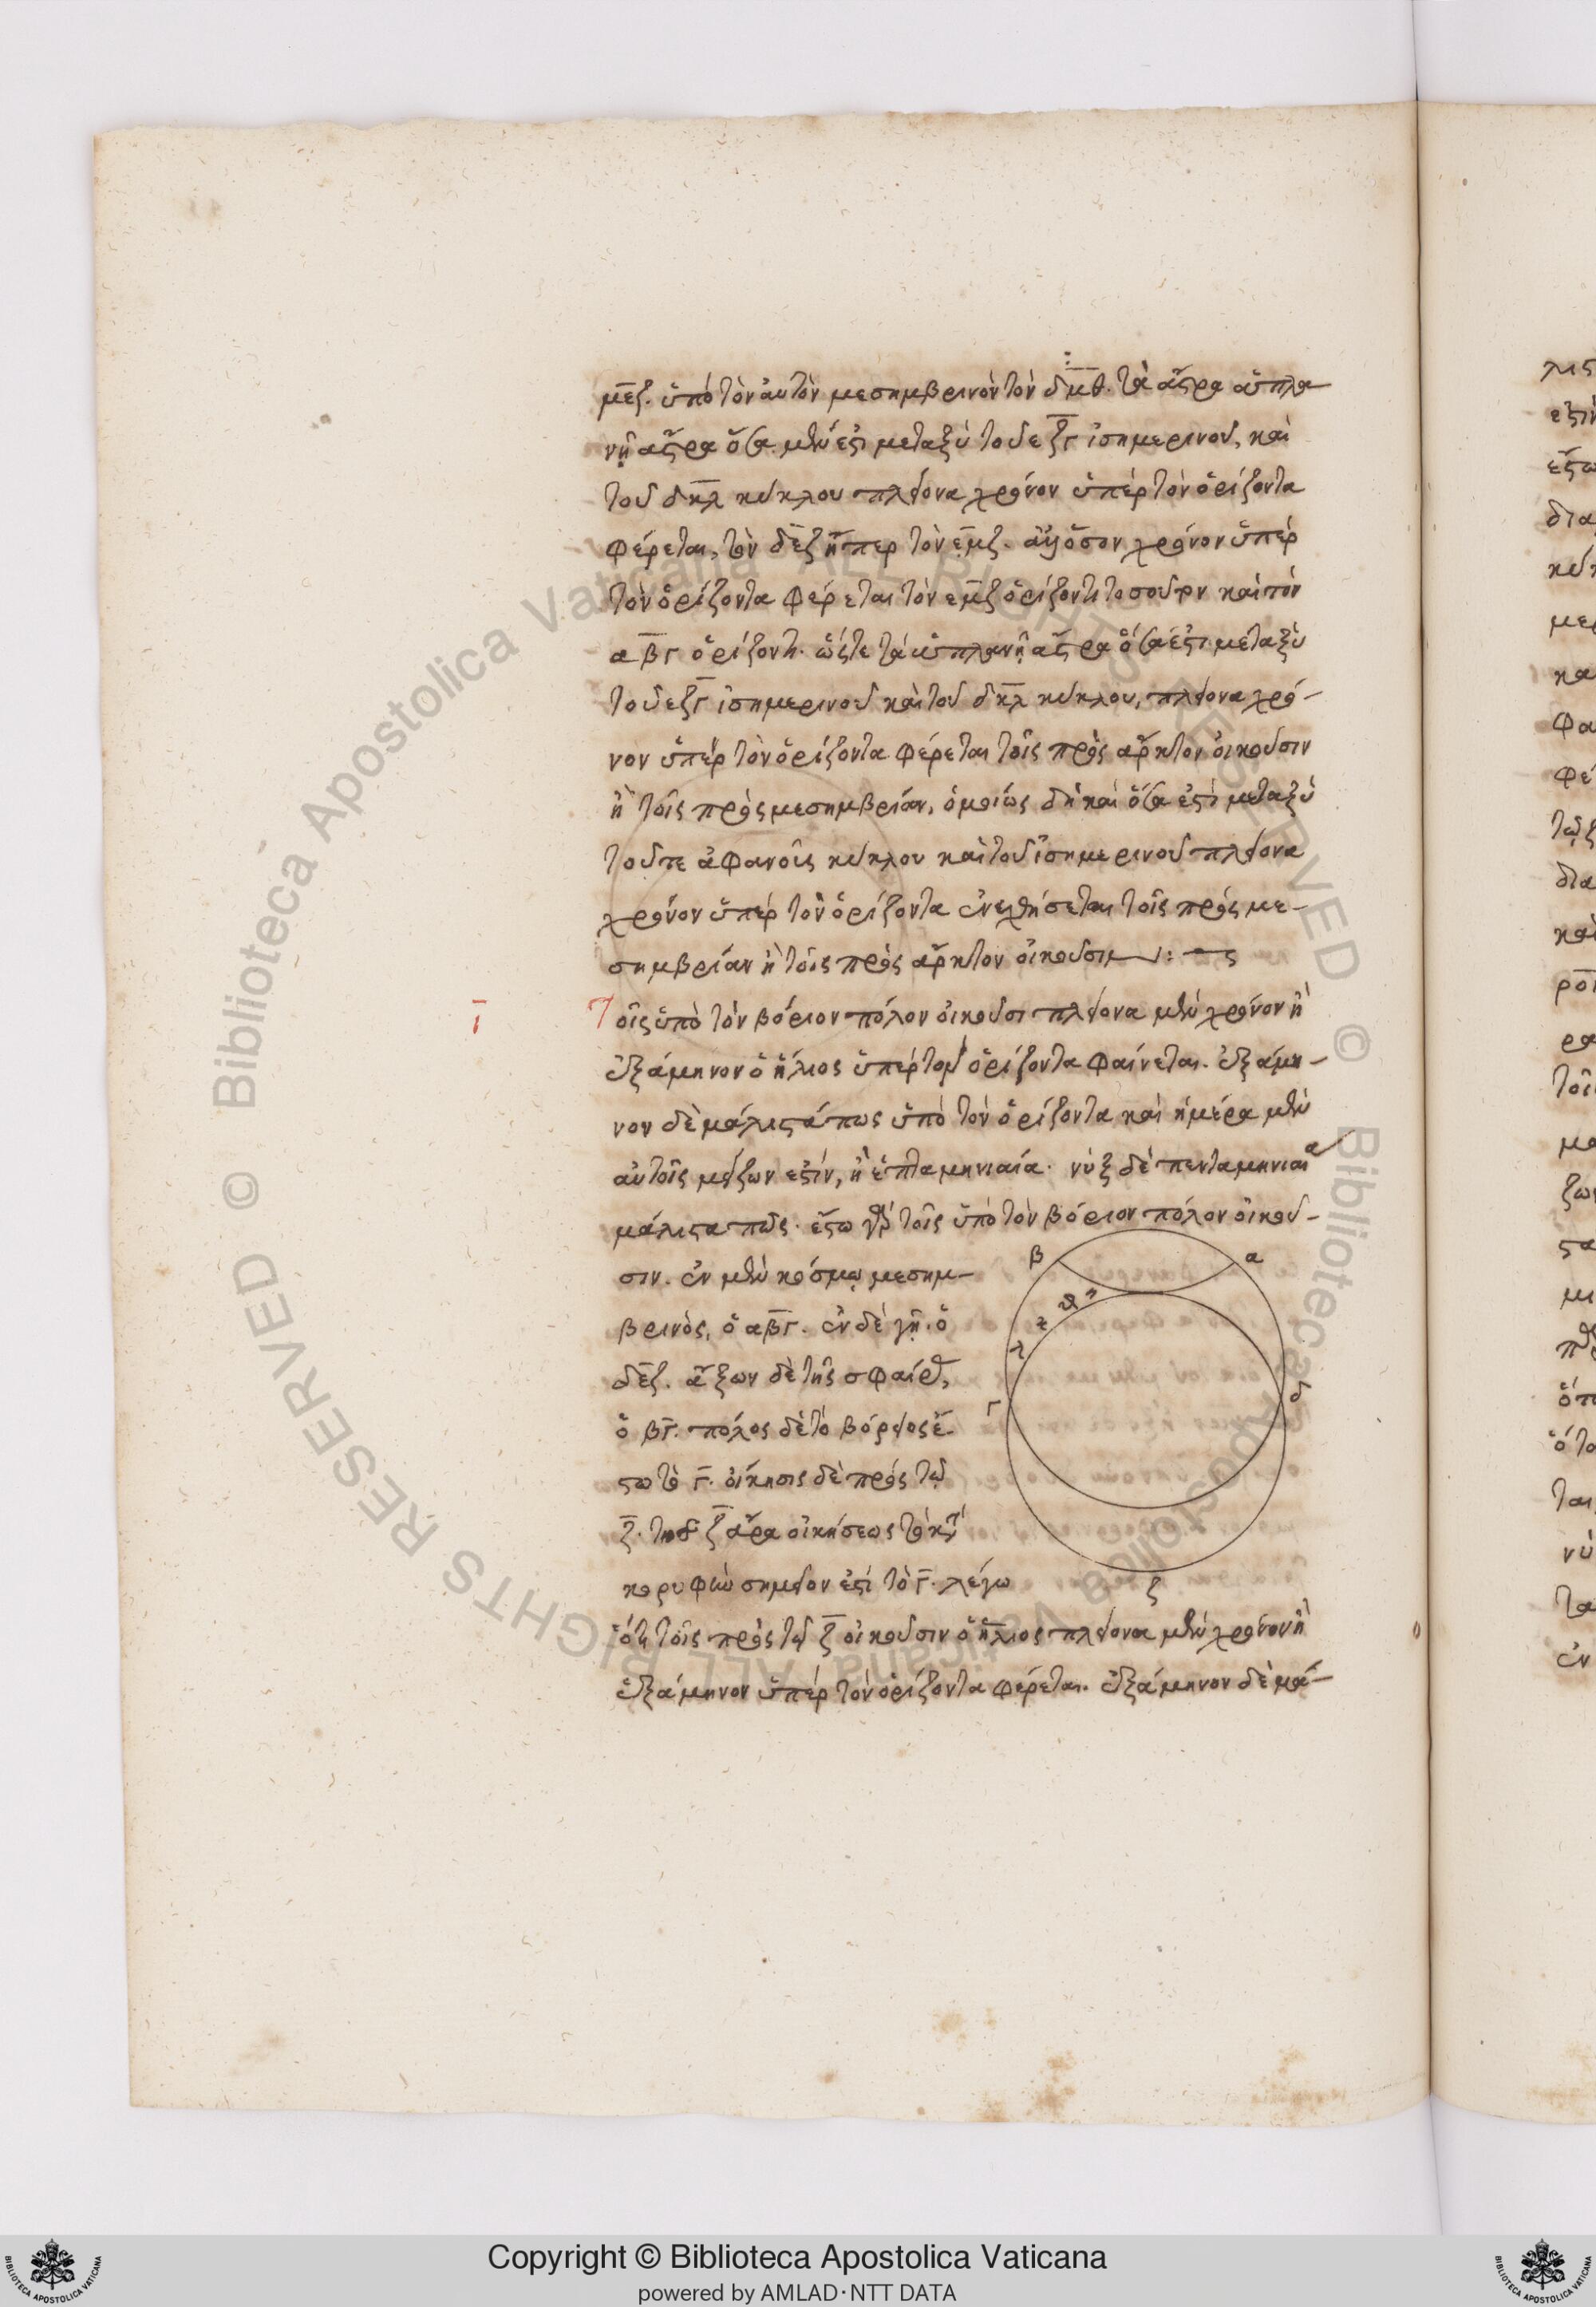 μεζ. ὑπὸ τὸν αὐτὸν μεσημβρινὸν τὸν δμθ. τὰ ἄστρα ἀπλα
νῆ ἄστρα ὅσα μέν ἐστι μεταξὺ τοῦ εζγ ἰσημερινοῦ, καὶ
τοῦ δκλ κύκλου πλείονα χρόνον ὑπὲρ τὸν ὁρίζοντα
φέρεται, τὸν δεζ ἤπερ τὸν εμζ. ὅσον χρόνον ὑπὲρ
τὸν ὁρίζοντα φέρεται τὸν εμζ ὁρίζοντι τοσοῦτον καὶ τὸν
αβγ ὁρίζοντι. ὥστε τὰ ἀπλανῆ ἄστρα ὅσα ἐστι μεταξὺ
τοῦ εζγ ἰσημερινοῦ καὶ τοῦ δκλ κύκλου, πλείονα χρό-
νον ὑπὲρ τὸν ὁρίζοντα φέρεται τοῖς πρὸς ἄρκτον οἰκοῦσιν
ἢ τοῖς πρὸς μεσημβρίαν, ὁμοίως δὴ καὶ ὅσα ἐστὶ μεταξὺ
τοῦ τε ἀφανοῦς κύκλου καὶ τοῦ ἰσημερινοῦ πλείονα
χρόνον ὑπὲρ τὸν ὁρίζοντα ἐνεχθήσεται τοῖς πρὸς με-
σημβρίαν ἢ τοῖς πρὸς ἄρκτον οἰκοῦσιν :
ι
Τοῖς ὑπὸ τὸν βόριον πόλον οἰκοῦσι πλείονα μὲν χρόνον ἢ
ἑξάμηνον ὁ ἥλιος ὑπὲρ τὸν ὁρίζοντα φαίνεται. ἑξάμη-
νον δὲ μάλιστά πως ὑπὸ τὸν ὁρίζοντα καὶ ἡμέρα μὲν
αὐτοῖς μείζων ἐστίν, ἢ ἑπταμηνιαία. νὺξ δὲ πενταμηνιαία
μάλιστα πῶς. ἔστω γὰρ τοῖς ὑπὸ τὸν βόριον πόλον οἰκοῦ-
σιν. ἐν μὲν κόσμῳ μεσημ-
βρινὸς, ὁ αβγ. ἐν δὲ γῇ. ὁ
δεζ. ἄξων δὲ τῆς σφαίρας,
ὁ βγ. πόλος δὲ τὸ βόρειος ἔ-
στω τὸ γ. οἴκησις δὲ πρὸς τῷ
ζ. τῆς ζ ἄρα οἰκήσεως τὸ κατὰ
κορυφὴν σημεῖον ἐστὶ τὸ γ. λέγω
ὅτι τοῖς πρὸς τῷ ζ οἰκοῦσιν ὁ ἥλιος πλείονα μὲν χρόνον ἢ
ἑξάμηνον ὑπὲρ τὸν ὁρίζοντα φέρεται. ἑξάμηνον δὲ μά-
β
α
θ η
κ
λ
γ
δ
ζ
Copyright © Biblioteca Apostolica Vaticana
powered by AMLAD·NTT DATA
© Biblioteca Apostolica Vaticana ALL RIGHTS RESERVED
© Biblioteca Apostolica Vaticana ALL RIGHTS RESERVED